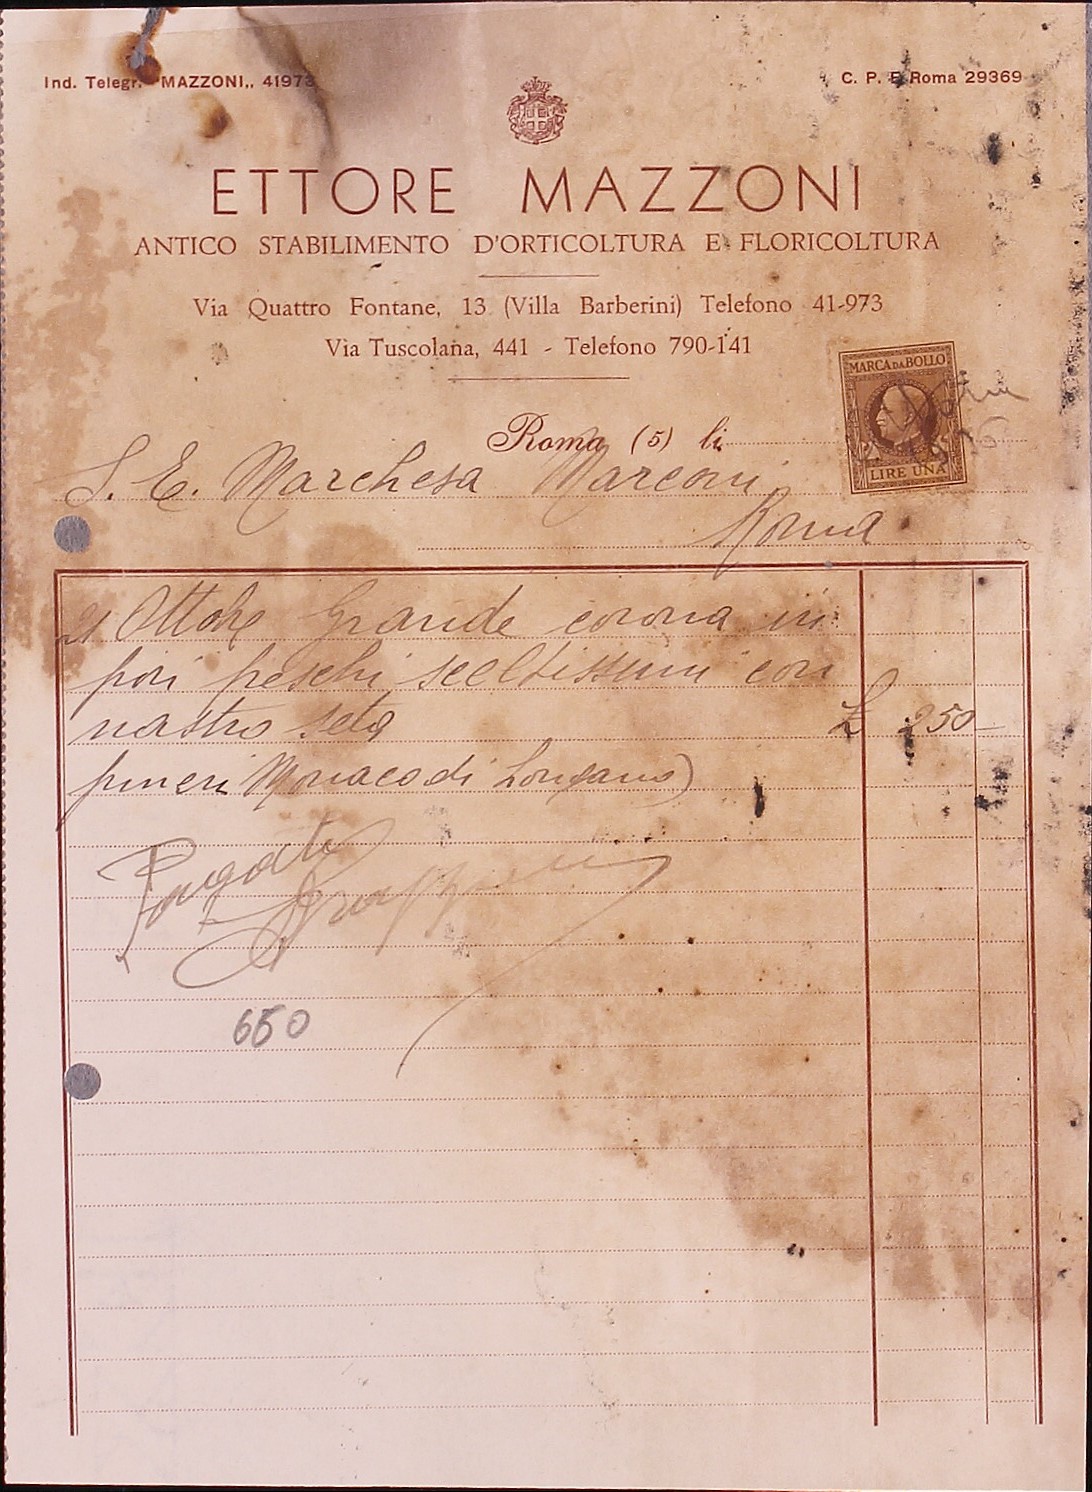 Ind. Telegr. MAZZONI,, 41973
C. P. E Roma 29369
ETTORE MAZZONI
ANTICO STABILIMENTO D'ORTICOLTURA E FLORICOLTURA
Via Quattro Fontane, 13 (Villa Barberini) Telefono 41-973
Via Tuscolana, 441 - Telefono 790-141
MARCA DA BOLLO
LIRE UNA
Roma (5) li
S. E. Marchesa Marconi
Roma
21 Ottobre Grande corona in
fiori freschi sceltissimi con
nastro seta £ 250-
funeri Monaco di Longano)
Pagato
650